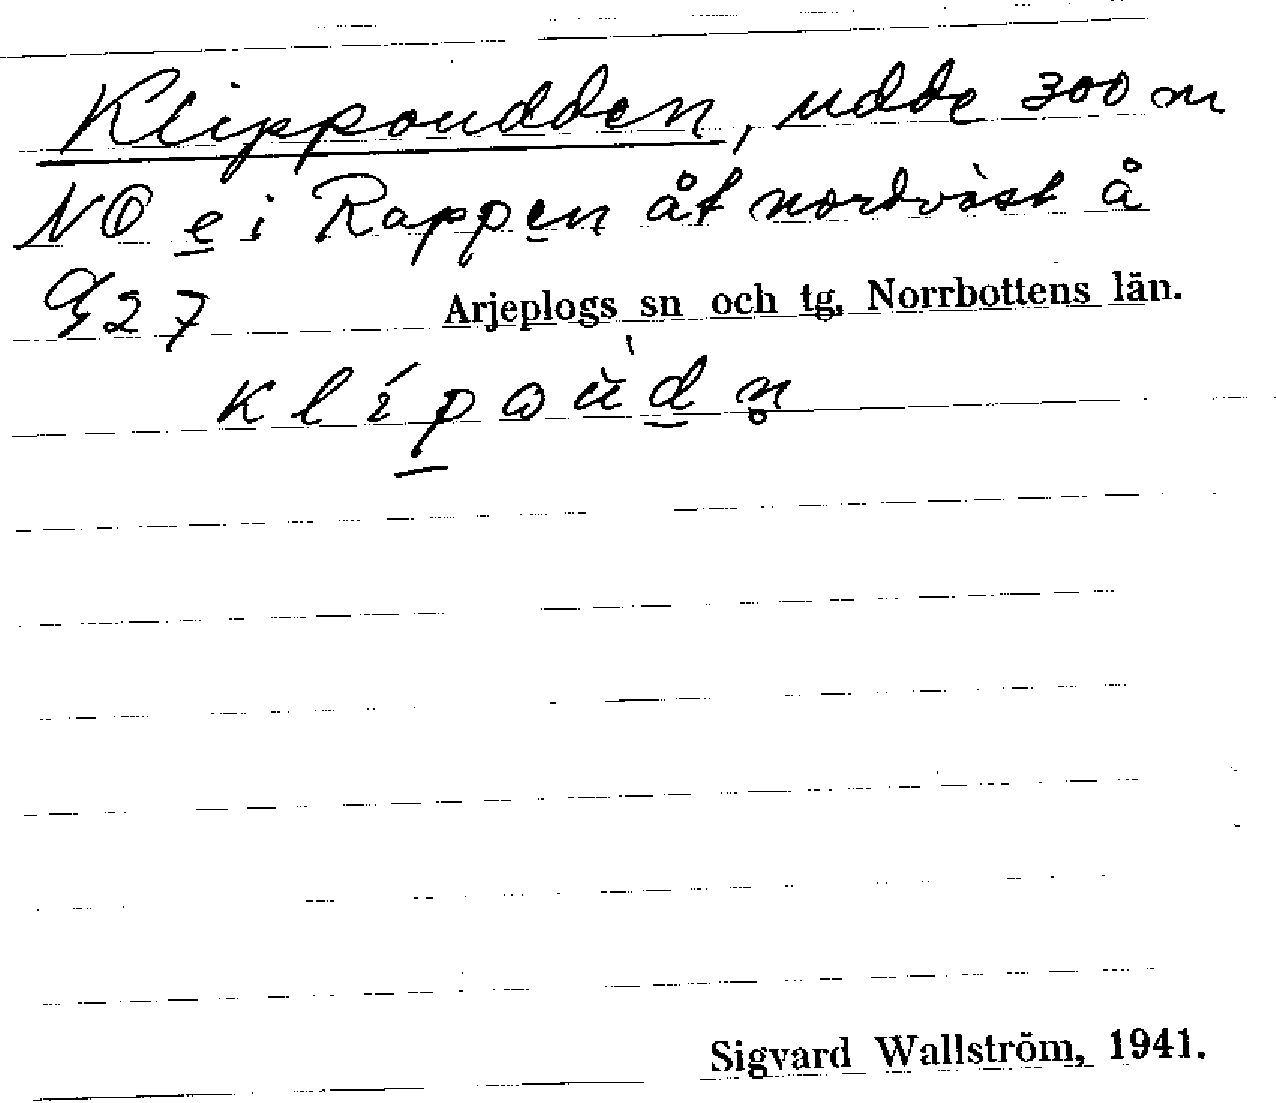 Klippoudden, udde 300 m
NO e i Rappen åt nordväst å
G 27
Arjeplogs sn och tg, Norrbottens län.
klípoùdn̥
Sigvard Wallström, 1941.